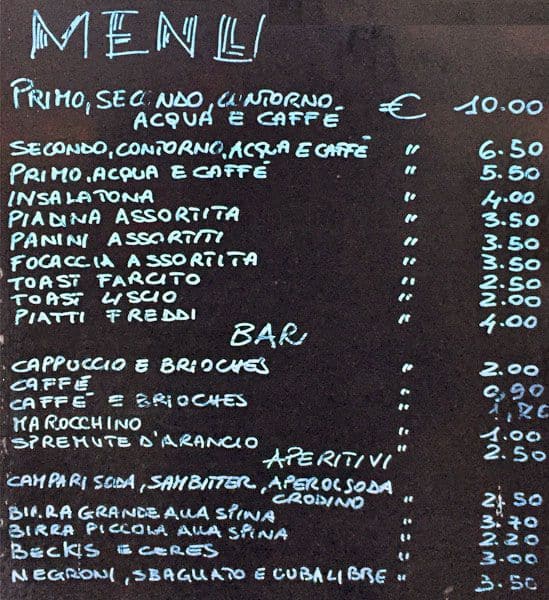 MENU
PRIMO, SECONDO, CONTORNO € 10.00
ACQUA E CAFFÈ
SECONDO, CONTORNO, ACQUA E CAFFÈ " 6.50
PRIMO, ACQUA E CAFFÈ " 5.50
INSALATONA " 4.00
PIADINA ASSORTITA " 3.50
PANINI ASSORTITI " 3.50
FOCACCIA ASSORTITA " 3.50
TOAST FARCITO " 2.50
TOAST LISCIO " 2.00
PIATTI FREDDI " 4.00
BAR
CAPPUCCIO E BRIOCHES " 2.00
CAFFÈ " 0,90
CAFFÈ E BRIOCHES "
MAROCCHINO " 1.00
SPREMUTE D'ARANCIO " 2.50
APERITIVI
CAMPARI SODA, SAMBITTER, APEROL SODA
CRODINO " 2.50
BIRRA GRANDE ALLA SPINA " 3.70
BIRRA PICCOLA ALLA SPINA " 2.20
BECKS E CERES " 3.00
NEGRONI, SBAGLIATO E CUBALIBRE " 3.50